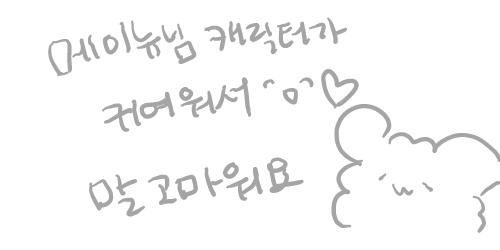 메이뉴님 캐릭터가
귀여워서 ^o^♡
말 고마워요